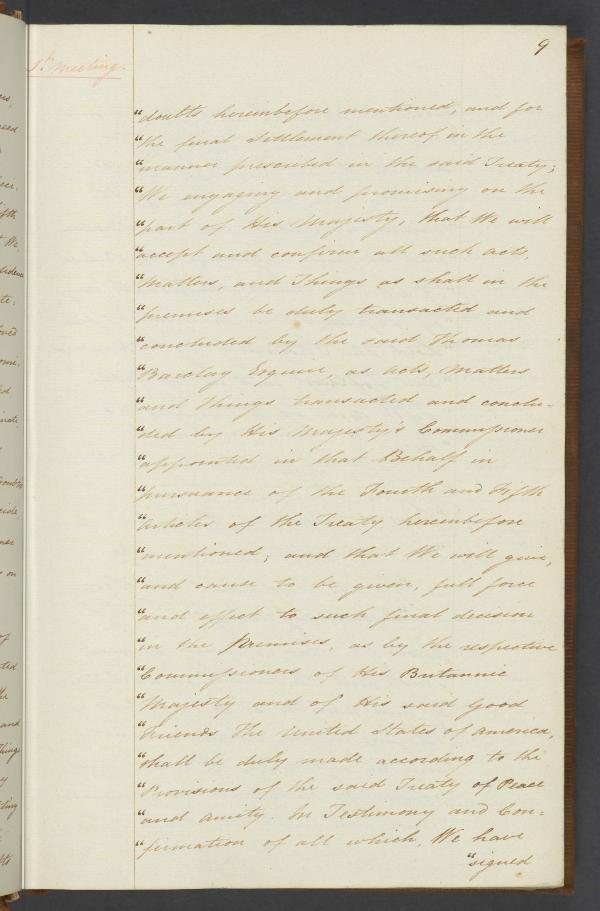 9
1st Meeting.
"doubts hereinbefore mentioned, and for
"the final Settlement thereof in the
"manner prescribed in the said Treaty;
"We engaging and promising on the
"part of His Majesty, that We will
"accept and confirm all such acts,
"Matters, and Things as shall in the
"premises be duly transacted and
"concluded by the said Thomas
"Barclay Esquire, as Acts, Matters
"and Things transacted and conclu-
"ded by His Majesty's Commissioner
"appointed in that Behalf in
"pursuance of the Fourth and Fifth
"Articles of the Treaty hereinbefore
"mentioned; and that We will give,
"and cause to be given, full force
"and effect to such final decision
"in the Premises, as by the respective
"Commissioners of His Britannic
"Majesty and of His said Good
"Friends The United States of America,
"shall be duly made according to the
"Provisions of the said Treaty of Peace
"and Amity. In Testimony and Con=
"firmation of all which, We have
"signed